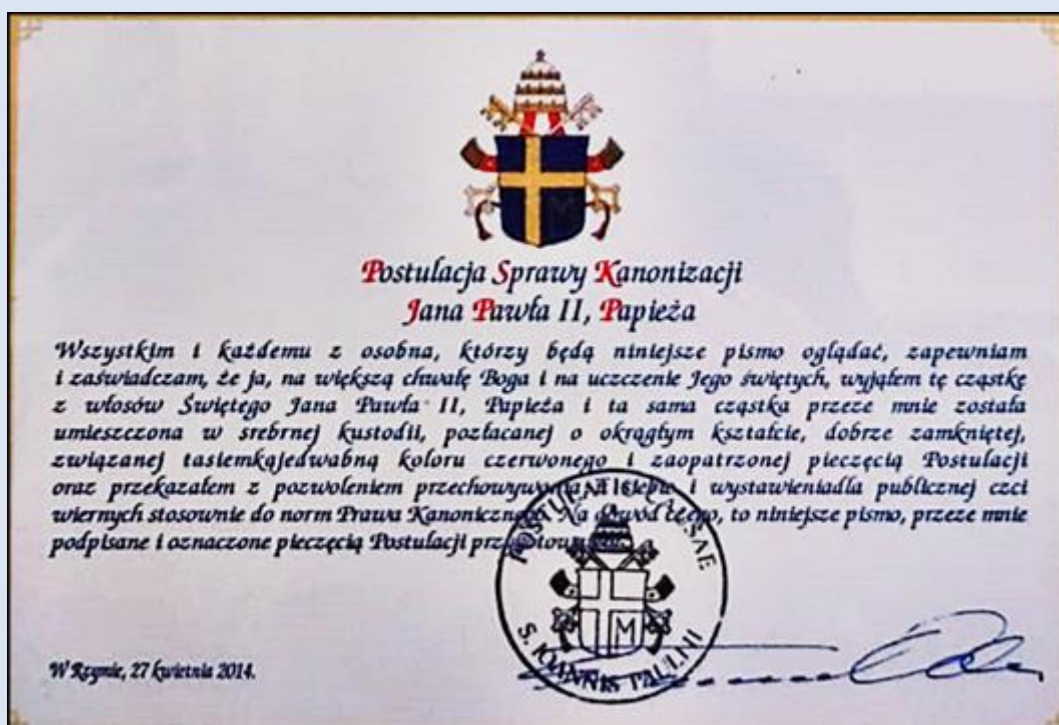 Postulacja Sprawy Kanonizacji
Jana Pawła II, Papieża
Wszystkim i każdemu z osobna, którzy będą niniejsze pismo oglądać, zapewniam
i zaświadczam, że ja, na większą chwałę Boga i na uczczenie Jego świętych, wyjąłem tę cząstkę
z włosów Świętego Jana Pawła II, Papieża i ta sama cząstka przeze mnie została
umieszczona w srebrnej kustodii, pozłacanej o okrągłym kształcie, dobrze zamkniętej,
związanej tasiemkąjedwabną koloru czerwonego i zaopatrzonej pieczęcią Postulacji
oraz przekazałem z pozwoleniem i wystawieniadla publicznej czci
wiernych stosownie do norm Prawa Kanonicznego. Na dowód tego, to niniejsze pismo, przeze mnie
podpisane i oznaczone pieczęcią Postulacji
S. IOANNIS
M
W Rzymie, 27 kwietnia 2014.